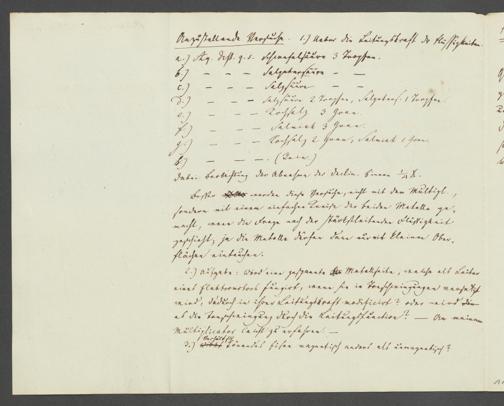 Anzustellende Versuche. 1.) Ueber die Leitungskraft der Flüssigkeiten.
a.) Aq. dest. q. s. Schwefelsäure 3 Tropfen.
b.) – – – Salpetersäure – –
c.) – – – Salzsäure – –
d.) – – – Salzsäure 2 Tropfen, Salpeters. 1 Tropfen
e.) – – – Kochsalz 3 Gran.
f.) – – – Salmiak 3 Gran.
g.) – – – Kochsalz 2 Gran, Salmiak 1 Gran.
h.) – – – (Rein.)
Dabei Beobachtung des Abnehmens der Declin. binnen
Besser werden diese Versuche, nicht mit dem Multipl.,
sondern mit einem einfachen Kreise der beiden Metalle ge-
macht, wenn die Frage nach der stärkstleitenden Flüssigkeit
geschieht; ja die Metalle dürfen dann nur mit kleinen Ober-
flächen eintauchen.
2.) Aufgabe: Wird eine gespannte Metallsaite, welche als Leiter
eines Elektromotors fungirt, wenn sie in Schwingungen versetzt
wird, dadurch in ihrer Leitungskraft modificirt? oder wird
es die Schwingung durch die Leitungsfunction? — An meinem
Multiplicator leicht zu erfahren. —
3.) Eisen magnetisch anders als unmagnetisch?